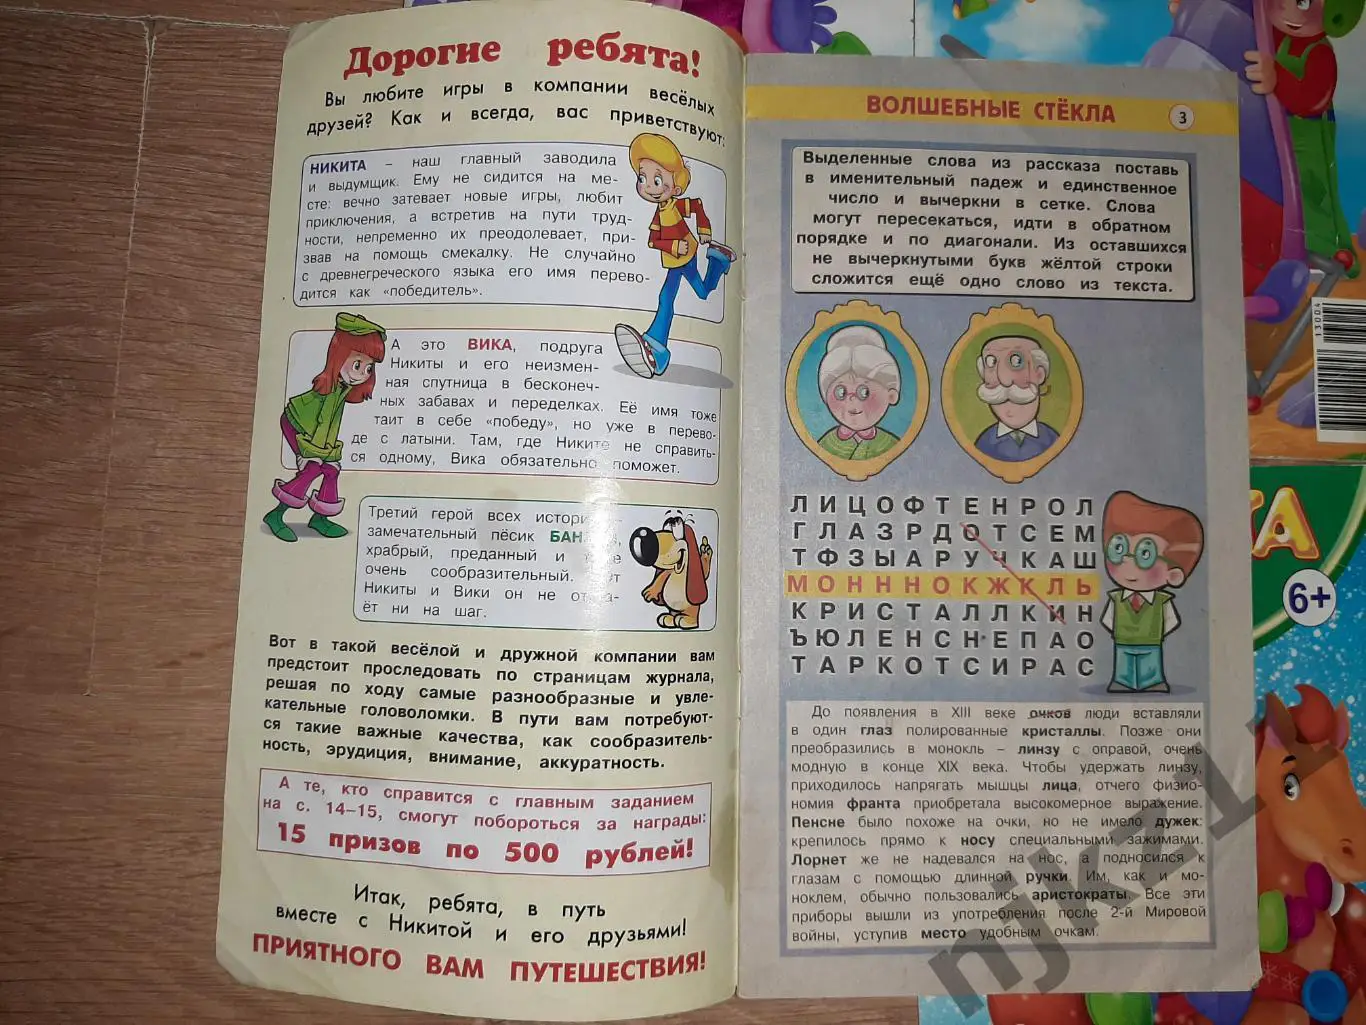 Дорогие ребята!
Вы любите игры в компании весёлых
друзей? Как и всегда, вас приветствуют:
НИКИТА – наш главный заводила
и выдумщик. Ему не сидится на ме-
сте: вечно затевает новые игры, любит
приключения, а встретив на пути труд-
ности, непременно их преодолевает, при-
звав на помощь смекалку. Не случайно
с древнегреческого языка его имя перево-
дится как «победитель».
А это ВИКА, подруга
Никиты и его неизмен-
ная спутница в бесконеч-
ных забавах и переделках. Её имя тоже
таит в себе «победу», но уже в перево-
де с латыни. Там, где Никите не справить-
ся одному, Вика обязательно поможет.
Третий герой всех
замечательный пёсик
храбрый, преданный и
очень сообразительный.
Никиты и Вики он не
ёт ни на шаг.
Вот в такой весёлой и дружной компании вам
предстоит проследовать по страницам журнала,
решая по ходу самые разнообразные и увле-
кательные головоломки. В пути вам потребуют-
ся такие важные качества, как сообразитель-
ность, эрудиция, внимание, аккуратность.
А те, кто справится с главным заданием
на с. 14–15, смогут побороться за награды:
15 призов по 500 рублей!
Итак, ребята, в путь
вместе с Никитой и его друзьями!
ПРИЯТНОГО ВАМ ПУТЕШЕСТВИЯ!
ВОЛШЕБНЫЕ СТЁКЛА
3
Выделенные слова из рассказа поставь
в именительный падеж и единственное
число и вычеркни в сетке. Слова
могут пересекаться, идти в обратном
порядке и по диагонали. Из оставшихся
не вычеркнутыми букв жёлтой строки
сложится ещё одно слово из текста.
ЛИЦОФТЕНРОЛ
ГЛАЗРДОТСЕМ
ТФЗЫАРУЧКАШ
МОНННОКЖКЛЬ
КРИСТАЛЛКИН
ЪЮЛЕНСНЕПАО
ТАРКОТСИРАС
До появления в XIII веке очков люди вставляли
в один глаз полированные кристаллы. Позже они
преобразились в монокль – линзу с оправой, очень
модную в конце XIX века. Чтобы удержать линзу,
приходилось напрягать мышцы лица, отчего физио-
номия франта приобретала высокомерное выражение.
Пенсне было похоже на очки, но не имело дужек:
крепилось прямо к носу специальными зажимами.
Лорнет же не надевался на нос, а подносился к
глазам с помощью длинной ручки. Им, как и мо-
ноклем, обычно пользовались аристократы. Все эти
приборы вышли из употребления после 2-й Мировой
войны, уступив место удобным очкам.
13004
6+
njkz-11